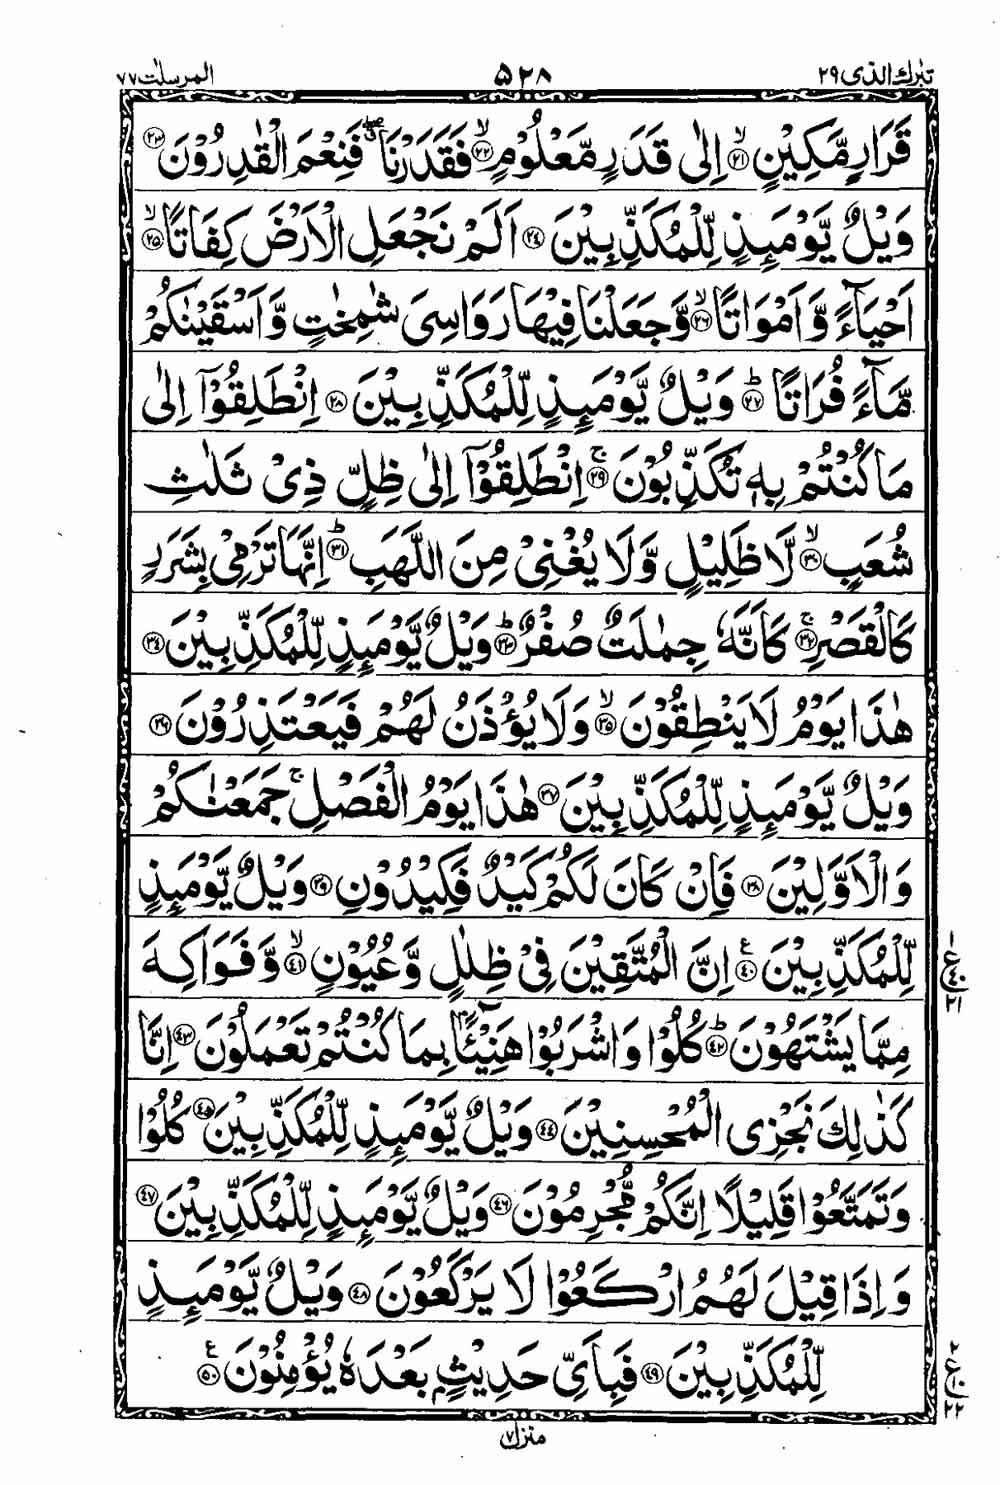 تبٰرك الذی ۲۹ ۵۲۸ المرسلٰت ۷۷
قَرَارٍ مَّكِیْنٍ ۙ﴿۲۱﴾ اِلٰى قَدَرٍ مَّعْلُوْمٍ ۙ﴿۲۲﴾ فَقَدَرْنَا ۖۗ فَنِعْمَ الْقٰدِرُوْنَ ﴿۲۳﴾
وَیْلٌ یَّوْمَىِٕذٍ لِّلْمُكَذِّبِیْنَ ﴿۲۴﴾ اَلَمْ نَجْعَلِ الْاَرْضَ كِفَاتًا ۙ﴿۲۵﴾
اَحْیَآءً وَّ اَمْوَاتًا ۙ﴿۲۶﴾ وَّ جَعَلْنَا فِیْهَا رَوَاسِیَ شٰمِخٰتٍ وَّ اَسْقَیْنٰكُمْ
مَّآءً فُرَاتًا ؕ﴿۲۷﴾ وَیْلٌ یَّوْمَىِٕذٍ لِّلْمُكَذِّبِیْنَ ﴿۲۸﴾ اِنْطَلِقُوْۤا اِلٰى
مَا كُنْتُمْ بِهٖ تُكَذِّبُوْنَ ۚ﴿۲۹﴾ اِنْطَلِقُوْۤا اِلٰى ظِلٍّ ذِیْ ثَلٰثِ
شُعَبٍ ۙ﴿۳۰﴾ لَّا ظَلِیْلٍ وَّ لَا یُغْنِیْ مِنَ اللَّهَبِ ؕ﴿۳۱﴾ اِنَّهَا تَرْمِیْ بِشَرَرٍ
كَالْقَصْرِ ۚ﴿۳۲﴾ كَاَنَّهٗ جِمٰلَتٌ صُفْرٌ ؕ﴿۳۳﴾ وَیْلٌ یَّوْمَىِٕذٍ لِّلْمُكَذِّبِیْنَ ﴿۳۴﴾
هٰذَا یَوْمُ لَا یَنْطِقُوْنَ ۙ﴿۳۵﴾ وَ لَا یُؤْذَنُ لَهُمْ فَیَعْتَذِرُوْنَ ﴿۳۶﴾
وَیْلٌ یَّوْمَىِٕذٍ لِّلْمُكَذِّبِیْنَ ﴿۳۷﴾ هٰذَا یَوْمُ الْفَصْلِ ۚ جَمَعْنٰكُمْ
وَ الْاَوَّلِیْنَ ﴿۳۸﴾ فَاِنْ كَانَ لَكُمْ كَیْدٌ فَكِیْدُوْنِ ﴿۳۹﴾ وَیْلٌ یَّوْمَىِٕذٍ
لِّلْمُكَذِّبِیْنَ ﴿۴۰﴾ ع اِنَّ الْمُتَّقِیْنَ فِیْ ظِلٰلٍ وَّ عُیُوْنٍ ۙ﴿۴۱﴾ وَّ فَوَاكِهَ
مِمَّا یَشْتَهُوْنَ ؕ﴿۴۲﴾ كُلُوْا وَ اشْرَبُوْا هَنِیْٓــٴًۢا بِمَا كُنْتُمْ تَعْمَلُوْنَ ﴿۴۳﴾ اِنَّا
كَذٰلِكَ نَجْزِی الْمُحْسِنِیْنَ ﴿۴۴﴾ وَیْلٌ یَّوْمَىِٕذٍ لِّلْمُكَذِّبِیْنَ ﴿۴۵﴾ كُلُوْا
وَ تَمَتَّعُوْا قَلِیْلًا اِنَّكُمْ مُّجْرِمُوْنَ ﴿۴۶﴾ وَیْلٌ یَّوْمَىِٕذٍ لِّلْمُكَذِّبِیْنَ ﴿۴۷﴾
وَ اِذَا قِیْلَ لَهُمُ ارْكَعُوْا لَا یَرْكَعُوْنَ ﴿۴۸﴾ وَیْلٌ یَّوْمَىِٕذٍ
لِّلْمُكَذِّبِیْنَ ﴿۴۹﴾ فَبِاَیِّ حَدِیْثٍۭ بَعْدَهٗ یُؤْمِنُوْنَ ﴿۵۰﴾ ع
منزل ۷